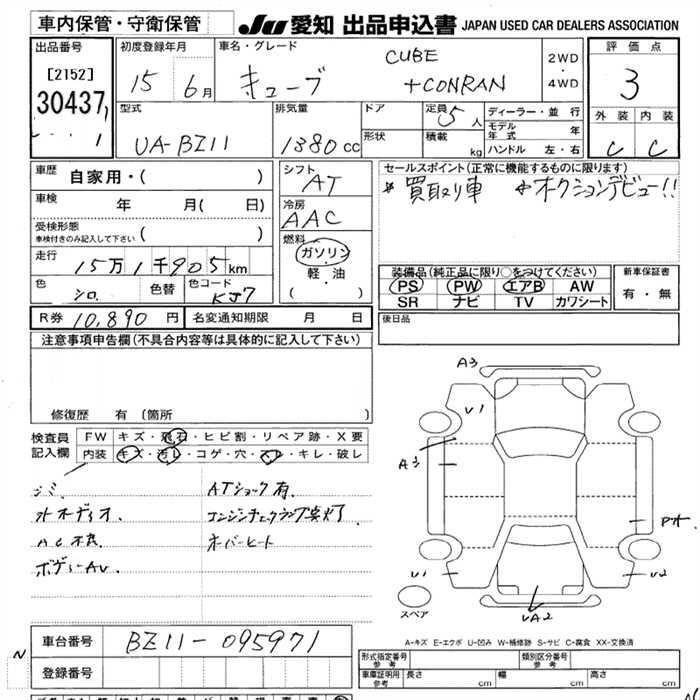 車内保管・守衛保管
JU 愛知 出品申込書 JAPAN USED CAR DEALERS ASSOCIATION
出品番号
[2152]
30437
1
初度登録年月
15 6月
車名・グレード
キューブ
CUBE
+CONRAN
2WD
・
4WD
評価点
3
外装 内装
C C
型式
UA-BZ11
排気量
1380cc
ドア
形状
定員 5人
積載 kg
ディーラー・並行
モデル年式 年
ハンドル 左・右
車歴
自家用・( )
車検
年 月( 日)
受検形態
車検付きのみ記入して下さい ( )
走行
15万1千905km
色 シロ
色替
色コード KJ7
R券 10,890円
名変通知期限 月 日
シフト
AT
冷房
AAC
燃料
ガソリン
・
軽・油
( )
セールスポイント(正常に機能するものに限ります)
買取り車 オークションデビュー!!
装備品(純正品に限り○をつけてください)
PS PW エアB AW
SR ナビ TV カワシート
新車保証書
有・無
後日品
注意事項申告欄(不具合内容等は具体的に記入して下さい)
修復歴 有(箇所 )
検査員
記入欄
FW キズ・飛石・ヒビ割・リペア跡・X要
内装 キズ・汚レ・コゲ・穴・スレ・キレ・破レ
シミ ATショック有
外オーディオ. エンジンチェックランプ点灯
AC不良 オーバーヒート
ボディーAU.
A3
U1
A3
U1
UA2
U2
スペア
A-キズ E-エクボ U-凹み W-補修跡 S-サビ C-腐食 XX-交換済
N
車台番号 BZ11-095971
登録番号
形式指定番号
参考
類別区分番号
参考
車庫証明用
参考
長さ cm
幅 cm
高さ cm